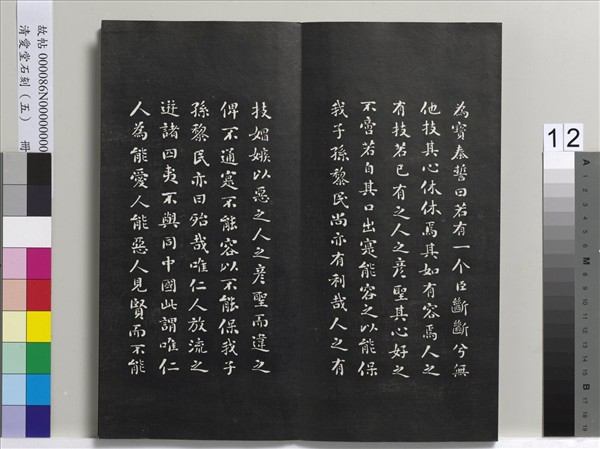 為寶秦誓曰若有一个臣斷斷兮無
他技其心休休焉其如有容焉人之
有技若己有之人之彥聖其心好之
不啻若自其口出寔能容之以能保
我子孫黎民尚亦有利哉人之有
技媢嫉以惡之人之彥聖而違之
俾不通寔不能容以不能保我子
孫黎民亦曰殆哉唯仁人放流之
迸諸四夷不與同中國此謂唯仁
人為能愛人能惡人見賢而不能
故帖 000086N000000000
清愛堂石刻（五） 冊
12
A 1 2 3 4 5 6 M 8 9 10 11 12 13 14 15 B 17 18 19